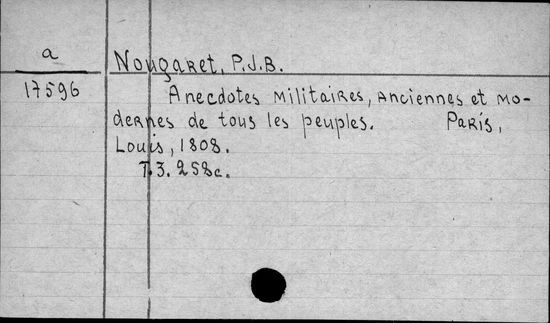 a
Nougaret, P.J.B.
17596
Anecdotes militaires, anciennes et mo-
dernes de tous les peuples. Paris,
Louis, 1808.
T.3. 258c.